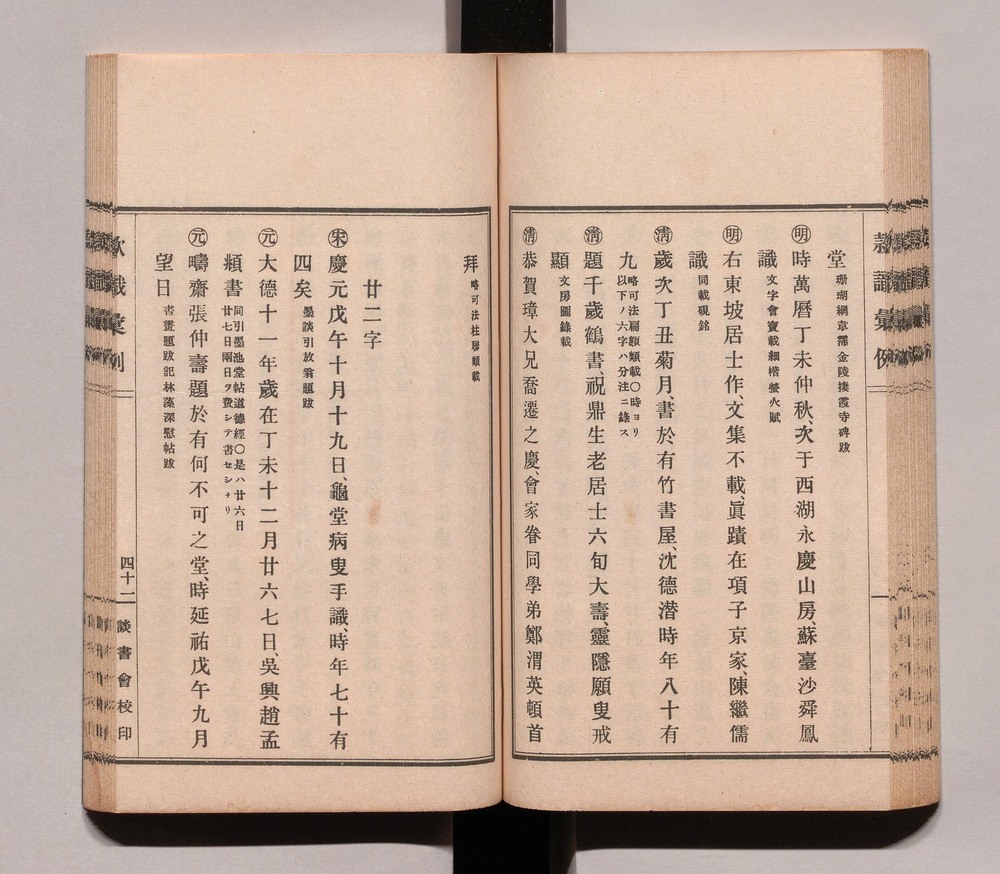 堂 珊瑚網草霈金陵接霞寺碑跋
㊐明 時萬曆丁未仲秋、次于西湖永慶山房、蘇臺沙舜鳳
識 文字會寶載細楷螢火賦
明 右東坡居士作、文集不載、眞蹟在項子京家、陳繼儒
識 同載硯銘
清 歲次丁丑菊月、書於有竹書屋、沈德潛時年八十有
九 略可法扁額類載〇時ヨリ
以下ノ六字ハ分注ニ錄ス
清 題千歲鶴書、祝鼎生老居士六旬大壽、靈隱願叟戒
顯 文房圖錄載
清 恭賀璋大兄喬遷之慶、會家眷同學弟鄭渭英頓首
拜 略可法柱聯類載
廿二字
宋 慶元戊午十月十九日、龜堂病叟手識、時年七十有
四矣 墨談引放翁題跋
元 大德十一年歲在丁未十二月廿六七日、吳興趙孟
頫書 同引墨池堂帖道德經〇是ハ廿六日
廿七日兩日ヲ費シテ書セシナリ
元 疇齋張仲壽題於有何不可之堂、時延祐戊午九月
望日 書畫題跋記林藻深慰帖跋
款識彙例
四十二
談書會校印